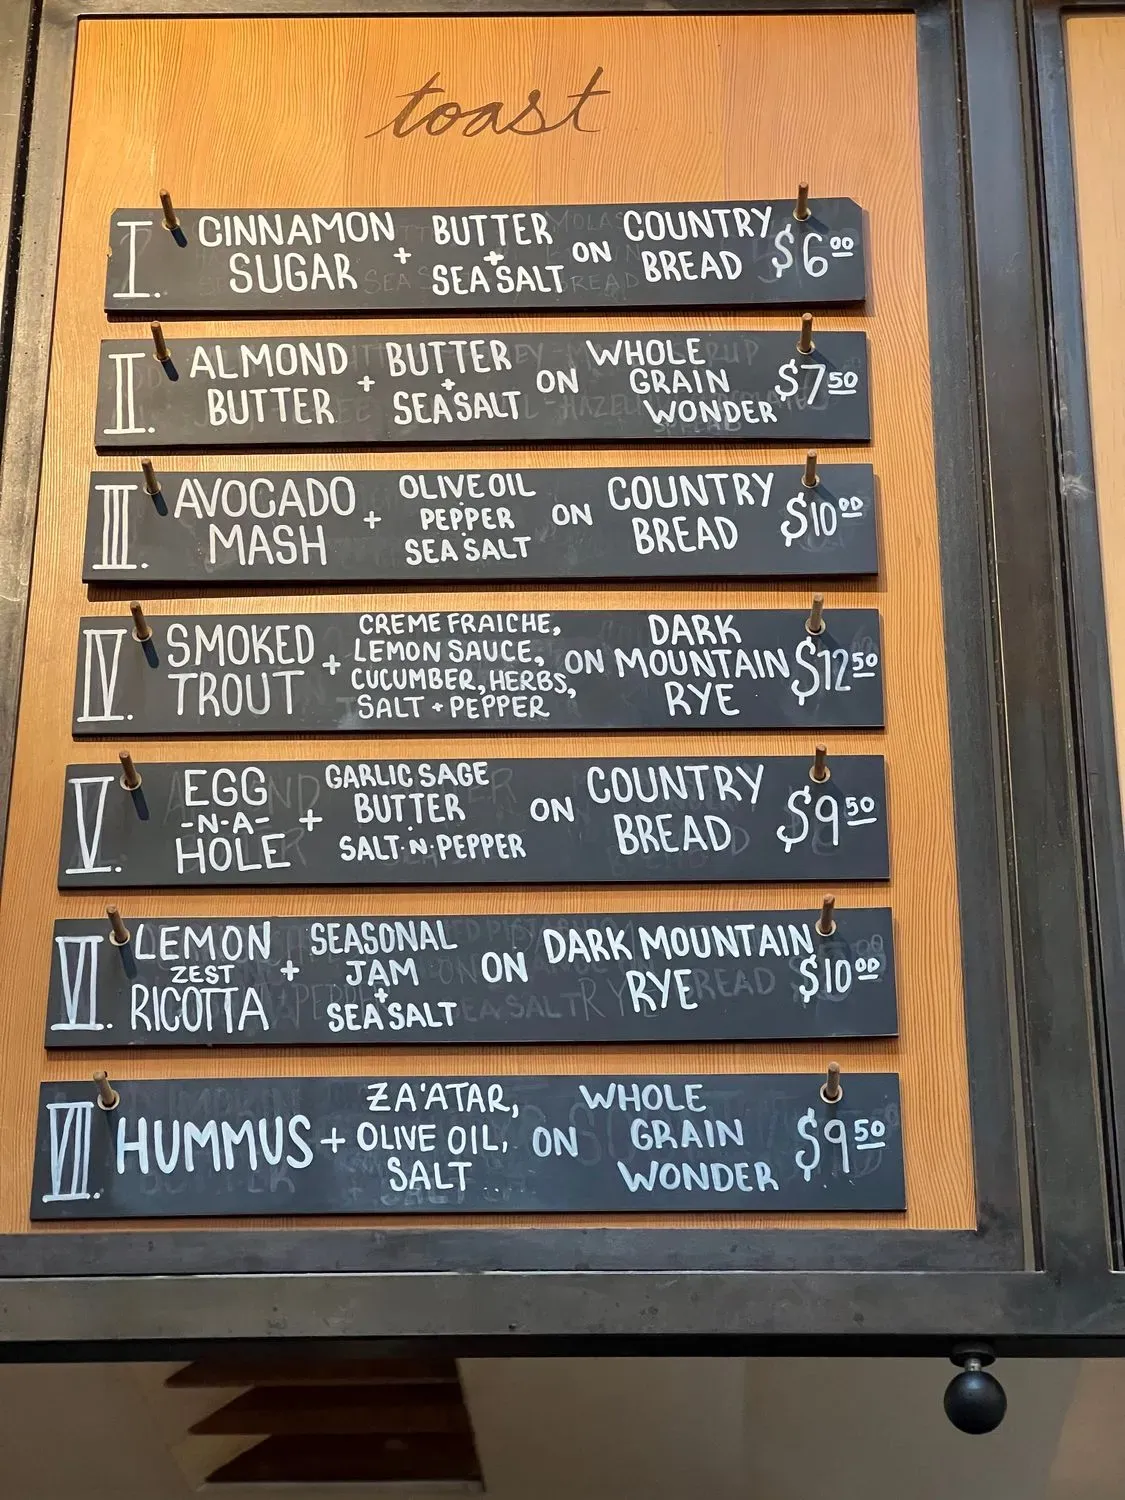 toast
I. CINNAMON SUGAR + BUTTER + SEA SALT ON COUNTRY BREAD $6.00
II. ALMOND BUTTER + BUTTER + SEA SALT ON WHOLE GRAIN WONDER $7.50
III. AVOCADO MASH + OLIVE OIL · PEPPER · SEA SALT ON COUNTRY BREAD $10.00
IV. SMOKED TROUT + CREME FRAICHE, LEMON SAUCE, CUCUMBER, HERBS, SALT + PEPPER ON DARK MOUNTAIN RYE $12.50
V. EGG -N-A- HOLE + GARLIC SAGE BUTTER · SALT·N·PEPPER ON COUNTRY BREAD $9.50
VI. LEMON ZEST RICOTTA + SEASONAL JAM + SEA SALT ON DARK MOUNTAIN RYE $10.00
VII. HUMMUS + ZA'ATAR, OLIVE OIL, SALT ON WHOLE GRAIN WONDER $9.50